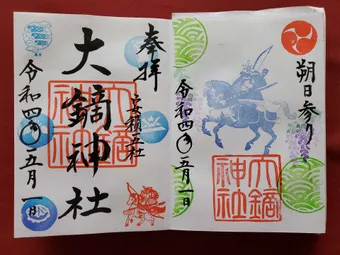 朔日参り
令和四年五月一日
大鏑神社
奉拝
安積三社
大鏑神社
大鏑神社
令和四年五月一日